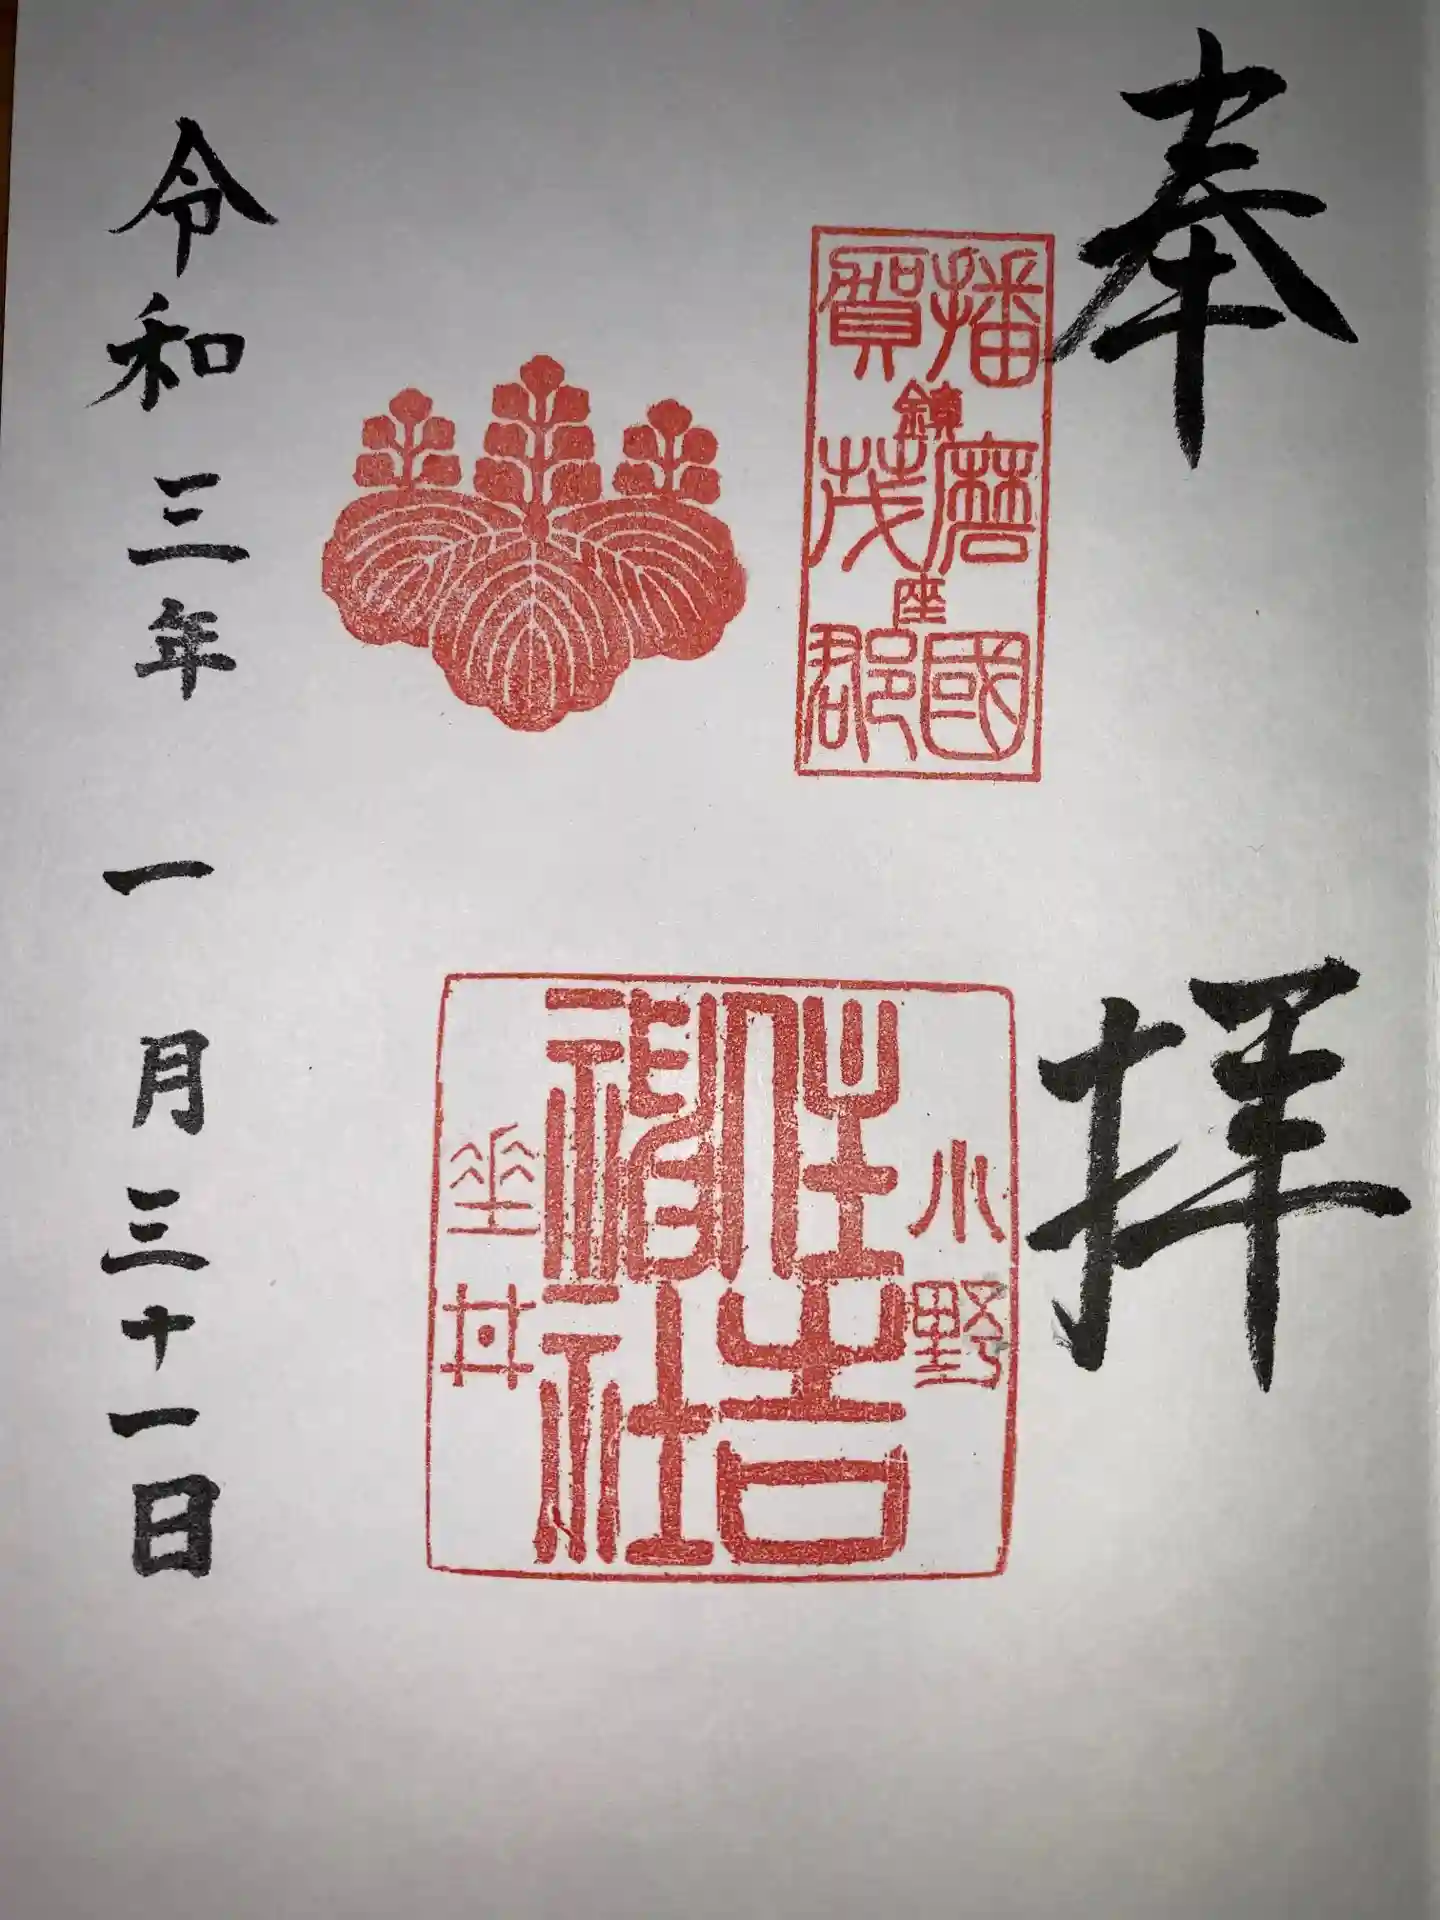 奉拝
播磨國
鎮座
賀茂郡
小野
住吉
神社
垂井
令和三年一月三十一日